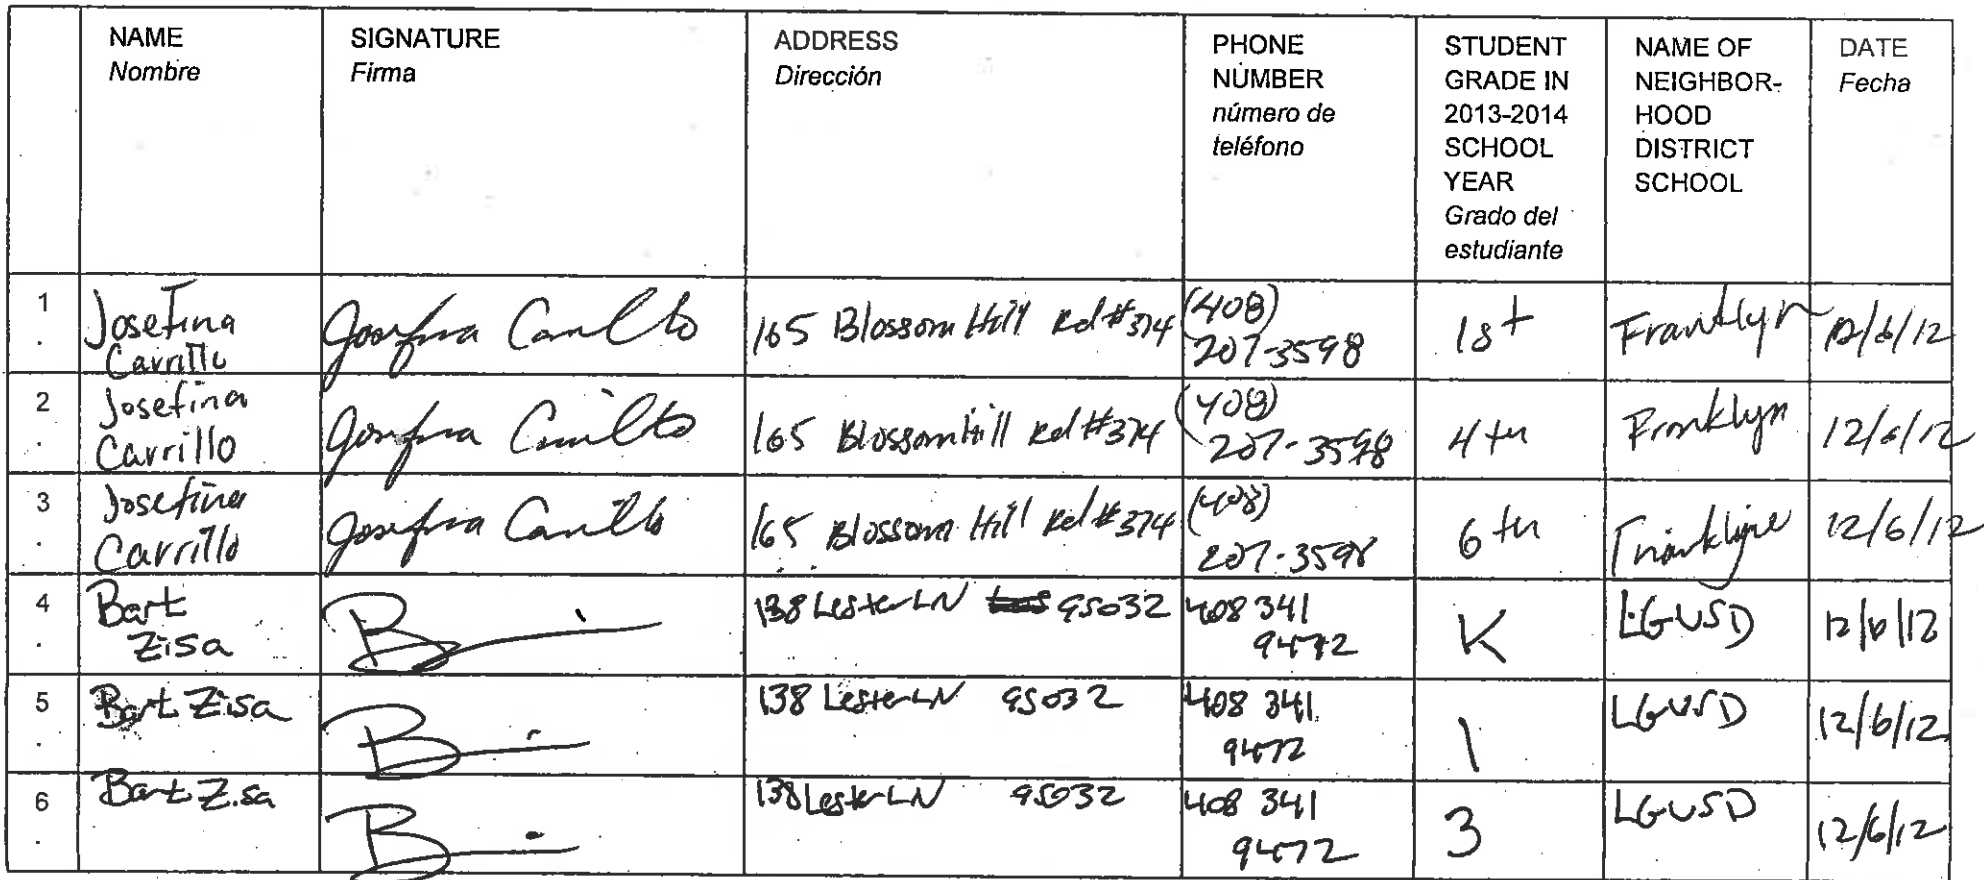 NAME
Nombre
SIGNATURE
Firma
ADDRESS
Dirección
PHONE
NUMBER
número de
teléfono
STUDENT
GRADE IN
2013-2014
SCHOOL
YEAR
Grado del
estudiante
NAME OF
NEIGHBOR-
HOOD
DISTRICT
SCHOOL
DATE
Fecha
1.
Josefina
Carrillo
Josefina Carrillo
165 Blossom Hill Rd #374
(408)
207-3598
1st
Franklyn
12/6/12
2.
Josefina
Carrillo
Josefina Carrillo
165 Blossom Hill Rd #374
(408)
207-3598
4th
Franklyn
12/6/12
3.
Josefina
Carrillo
Josefina Carrillo
165 Blossom Hill Rd #374
(408)
207-3598
6th
12/6/12
4.
Bart
Zisa
138 Lester LN 95032
408 341
9472
K
LGUSD
12/6/12
5.
Bart Zisa
138 Lester LN 95032
408 341
9472
1
LGUSD
12/6/12
6.
Bart Zisa
138 Lester LN 95032
408 341
9472
3
LGUSD
12/6/12